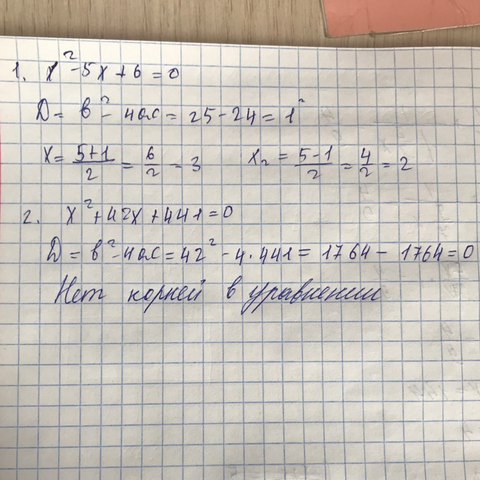 1. x² - 5x + 6 = 0
D = b² - 4ac = 25 - 24 = 1
x = (5+1)/2 = 6/2 - 3   x₂ = (5-1)/2 = 4/2 = 2
2. x² + 42x + 441 = 0
D = b² - 4ac = 42² - 4·441 = 1764 - 1764 = 0
Нет корней в уравнении